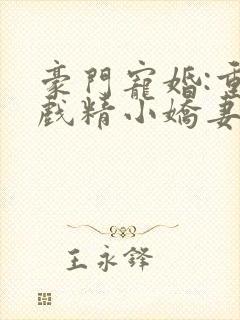 豪門寵婚:重
戲精小嬌妻
王永鋒